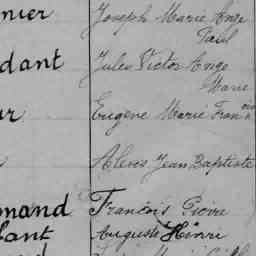 nier Joseph Marie Ange
Paul
dant Jules Victor Ange
Marie
ur Eugène Marie Fran
Alexis Jean Baptiste
mand François Pierre
lant Auguste Henri